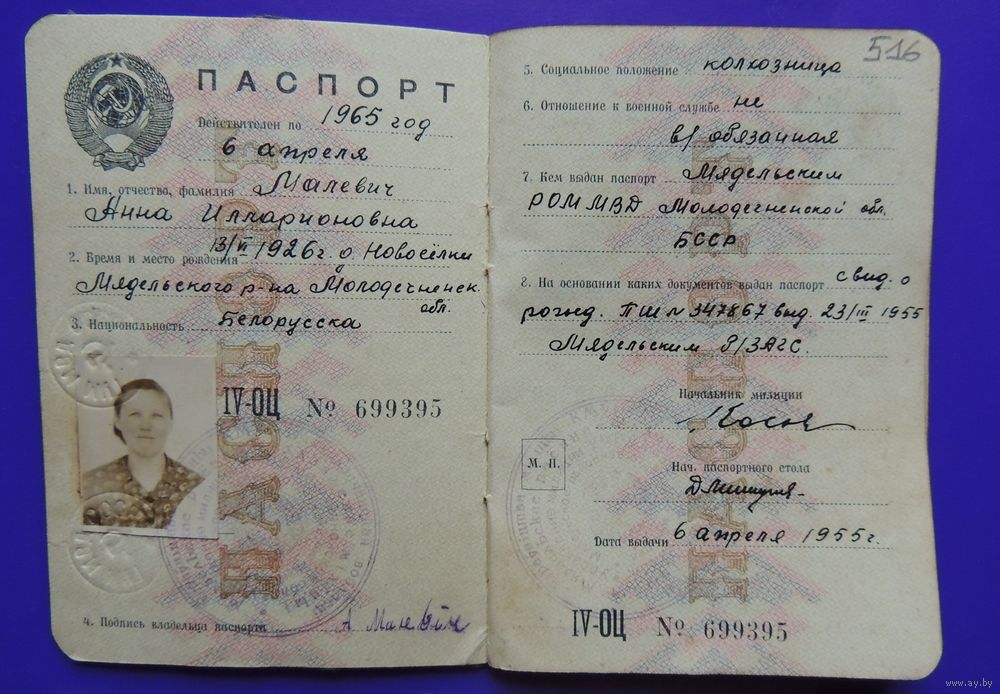 ПАСПОРТ
Действителен по 1965 год
6 апреля
1. Имя, отчество, фамилия Малевич
Анна Илларионовна
2. Время и место рождения 13/VI 1926 г. д. Новосёлки
Мядельского р-на Молодечненск.
обл.
3. Национальность Белорусска
IV-ОЦ № 699395
4. Подпись владельца паспорта А Малевич
516
5. Социальное положение колхозница
6. Отношение к военной службе не
в/обязанная
7. Кем выдан паспорт Мядельским
РОМ МВД Молодечненской обл.
БССР
8. На основании каких документов выдан паспорт свид. о
рожд. ПШ № 347867 выд. 23/III 1955
Мядельским Р/ЗАГС.
Начальник милиции
М. П.
Нач. паспортного стола
Дата выдачи 6 апреля 1955 г.
IV-ОЦ № 699395
www.ay.by